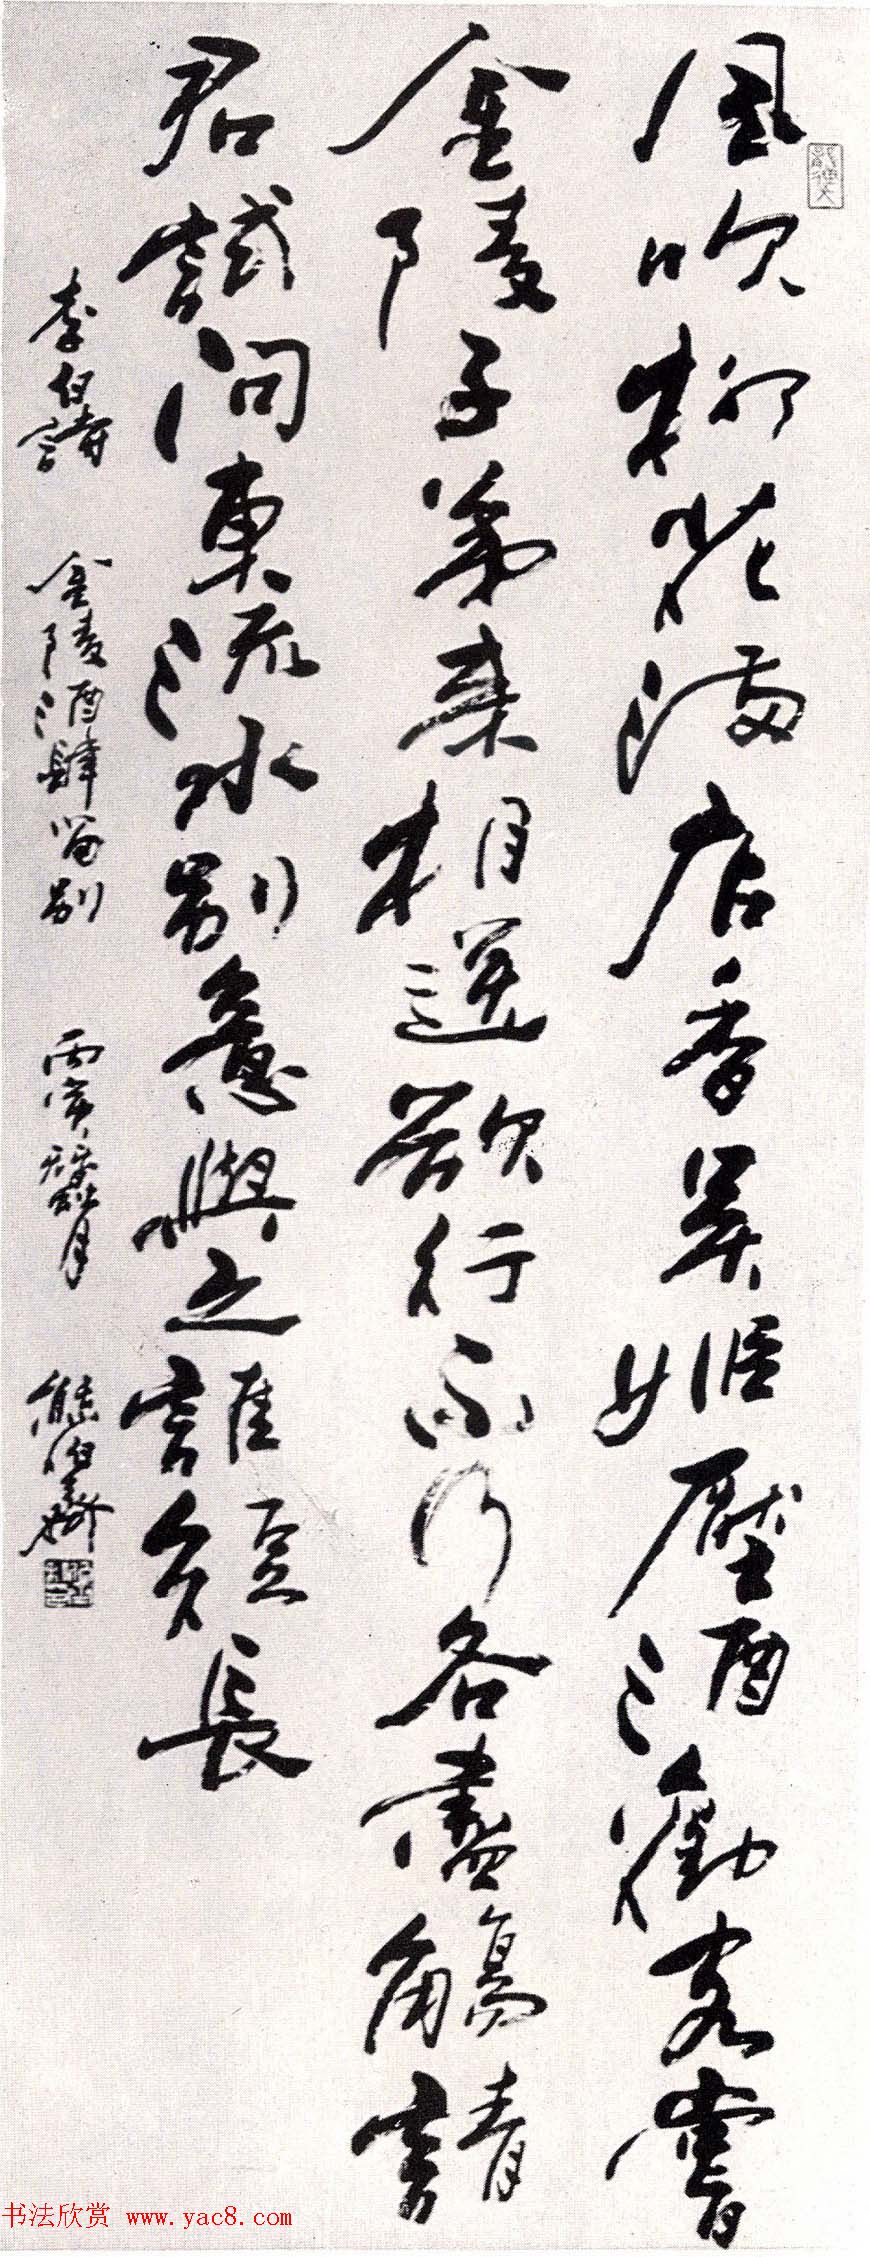 風吹柳花滿店香吳姬壓酒勸客嘗
金陵子弟来相送欲行不行各盡觴請
君試問東流水別意與之誰短長
李白詩 金陵酒肆留別 丙寅臘月 熊伯齊
书法欣赏 www.yac8.com